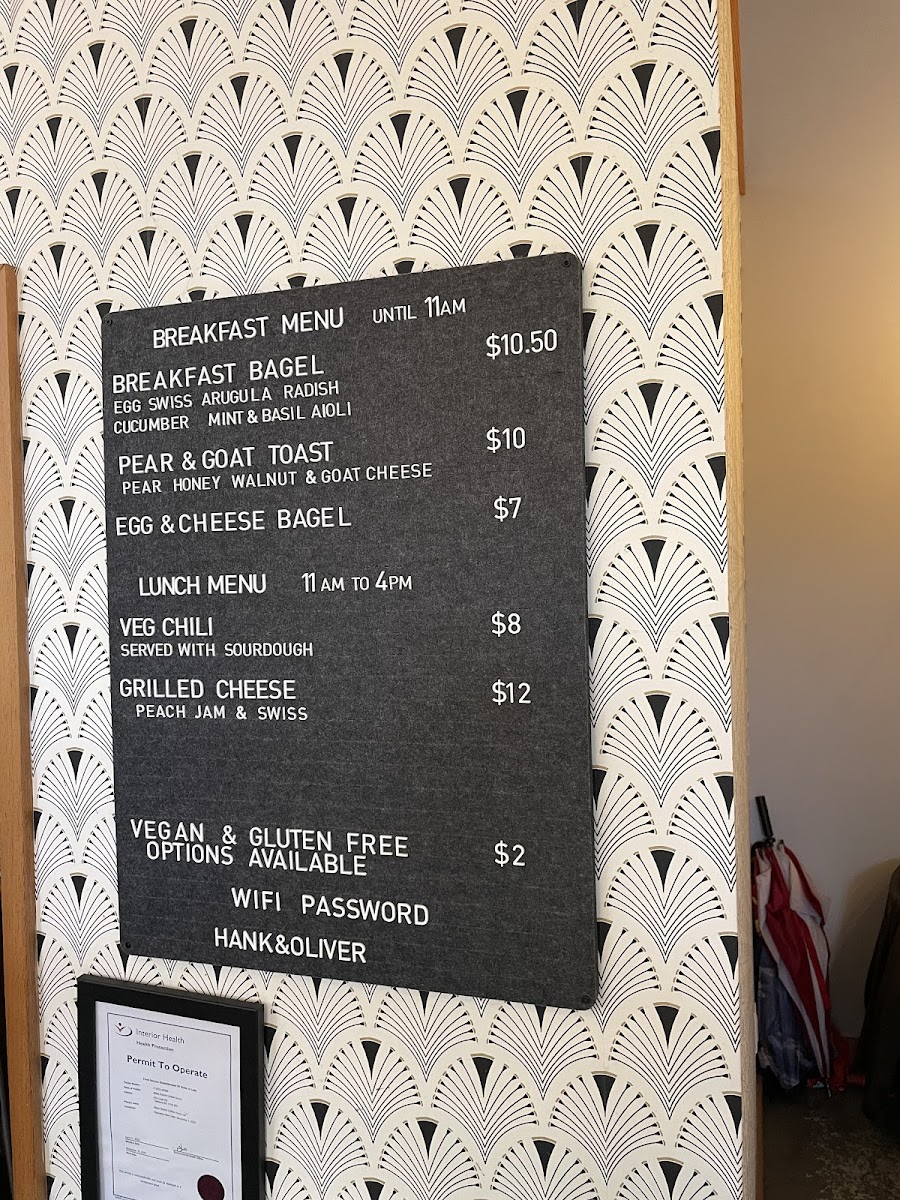 BREAKFAST MENU UNTIL 11AM
BREAKFAST BAGEL $10.50
EGG SWISS ARUGULA RADISH
CUCUMBER MINT & BASIL AIOLI
PEAR & GOAT TOAST $10
PEAR HONEY WALNUT & GOAT CHEESE
EGG & CHEESE BAGEL $7
LUNCH MENU 11 AM TO 4PM
VEG CHILI $8
SERVED WITH SOURDOUGH
GRILLED CHEESE $12
PEACH JAM & SWISS
VEGAN & GLUTEN FREE
OPTIONS AVAILABLE $2
WIFI PASSWORD
HANK&OLIVER
Interior Health
Health Protection
Permit To Operate